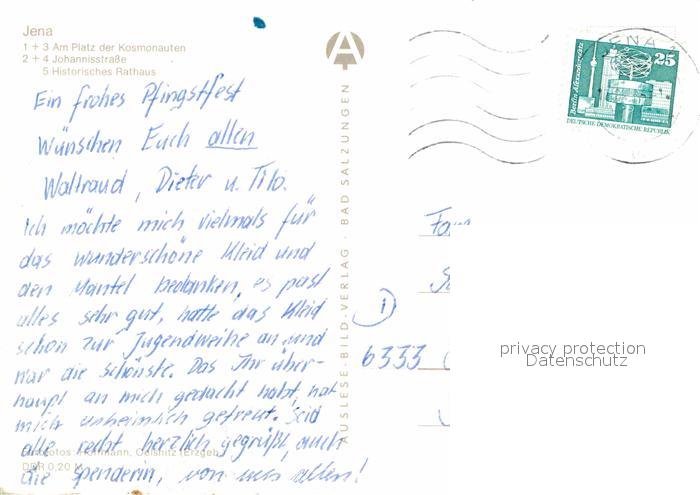 Jena
1 + 3 Am Platz der Kosmonauten
2 + 4 Johannisstraße
5 Historisches Rathaus
Ein frohes Pfingstfest
wünschen Euch allen
Waltraud, Dieter u. Tilo.
Ich möchte mich vielmals für
das wunderschöne Kleid und
den Mantel bedanken, es past
alles sehr gut, hatte das Kleid
schon zur Jugendweihe an und
war die schönste. Das Ihr über-
haupt an mich gedacht habt, hat
mich unheimlich gefreut. Seid
alle recht herzlich gegrüßt, auch
die Spenderin, von uns allen!
Hoffmann, Oelsnitz (Erzgeb.)
DDR 0,20 M
AUSLESE-BILD-VERLAG · BAD SALZUNGEN
A
JENA
25
Berlin, Alexanderplatz
DEUTSCHE DEMOKRATISCHE REPUBLIK
Fam
1
6333
privacy protection
Datenschutz